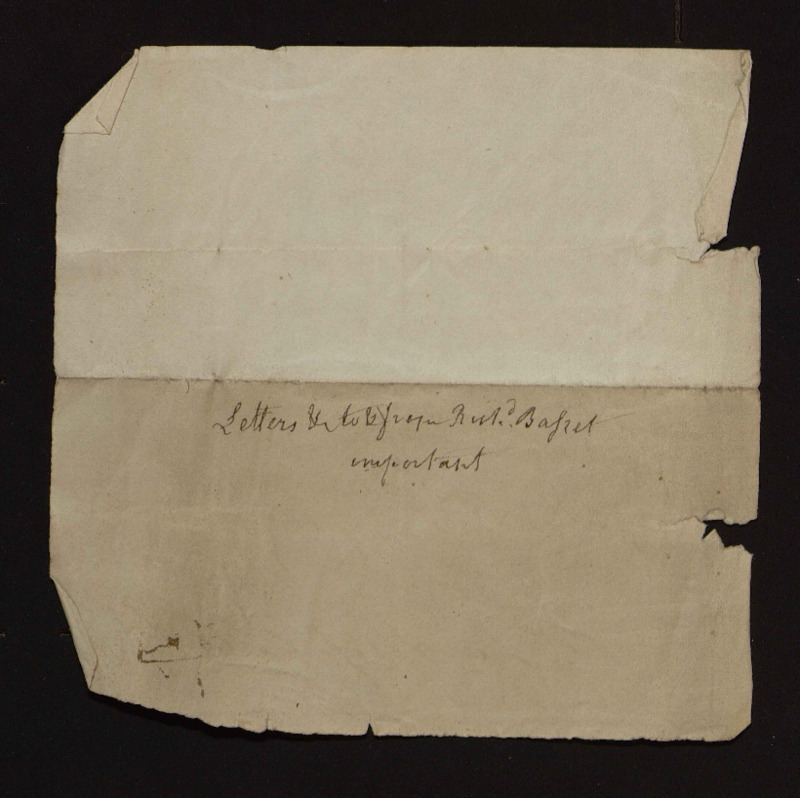 Letters &c to & from Rich.d Basset
important